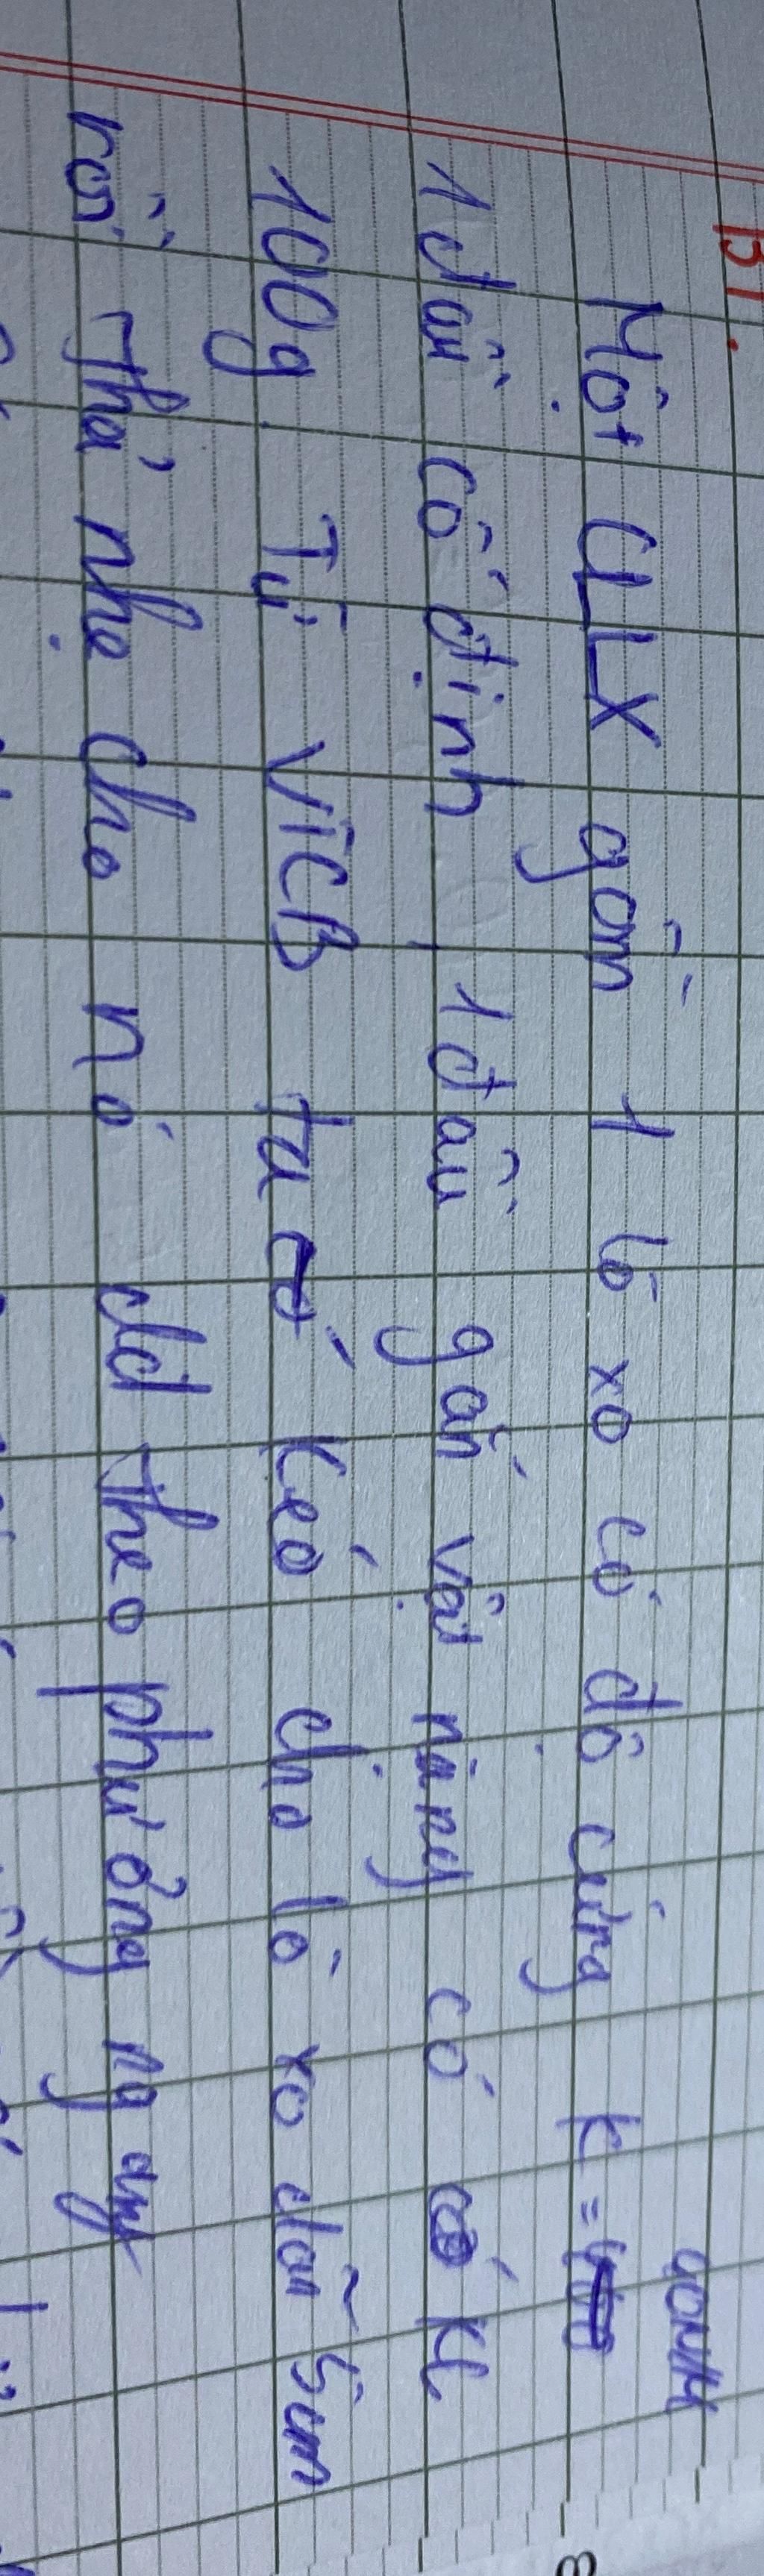 BT.
40N/m
Một CLLX gồm 1 lò xo có độ cứng k =
1 đầu cố định, 1 đầu gắn vật nặng có KL
100g. Từ VTCB ta kéo cho lò xo dãn 5cm
rồi thả nhẹ cho nó dd theo phương ngang